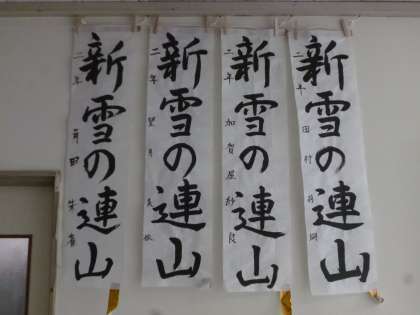 新雪の連山
二年
新雪の連山
二年 望月
新雪の連山
三年 加賀屋紗良
新雪の連山
二年 田村